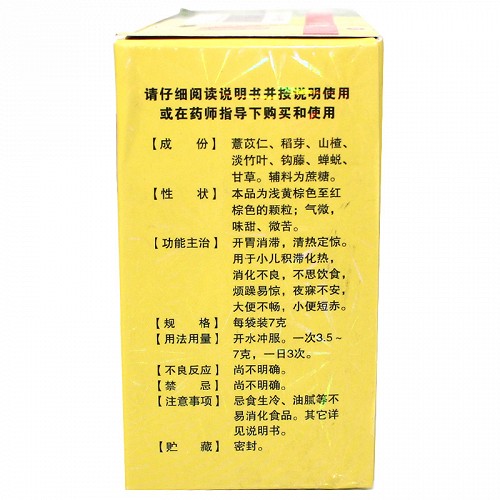 请仔细阅读说明书并按说明使用
或在药师指导下购买和使用
【成 份】薏苡仁、稻芽、山楂、
淡竹叶、钩藤、蝉蜕、
甘草。辅料为蔗糖。
【性 状】本品为浅黄棕色至红
棕色的颗粒；气微，
味甜、微苦。
【功能主治】开胃消滞，清热定惊。
用于小儿积滞化热，
消化不良，不思饮食，
烦躁易惊，夜寐不安，
大便不畅，小便短赤。
【规 格】每袋装7克
【用法用量】开水冲服。一次3.5～
7克，一日3次。
【不良反应】尚不明确。
【禁 忌】尚不明确。
【注意事项】忌食生冷、油腻等不
易消化食品。其它详
见说明书。
【贮 藏】密封。